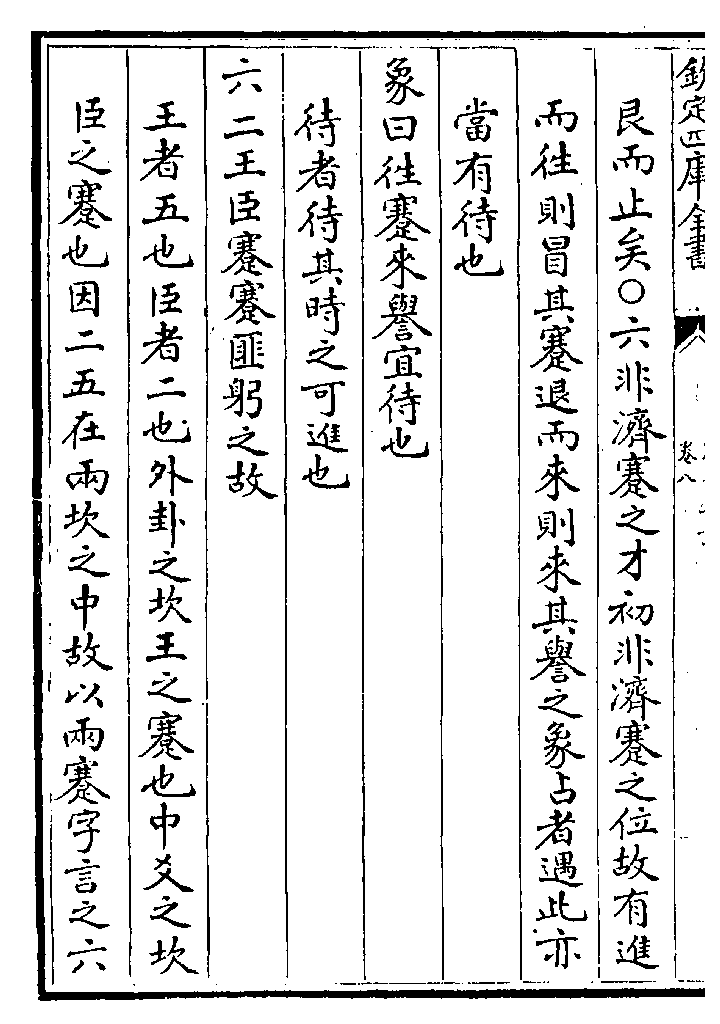 欽定四庫全書
卷八
艮而止矣○六非濟蹇之才初非濟蹇之位故有進
而徃則冒其蹇退而來則來其譽之象占者遇此亦
當有待也
象曰徃蹇來譽宜待也
待者待其時之可進也
六二王臣蹇蹇匪躬之故
王者五也臣者二也外卦之坎王之蹇也中爻之坎
臣之蹇也因二五在兩坎之中故以兩蹇字言之六